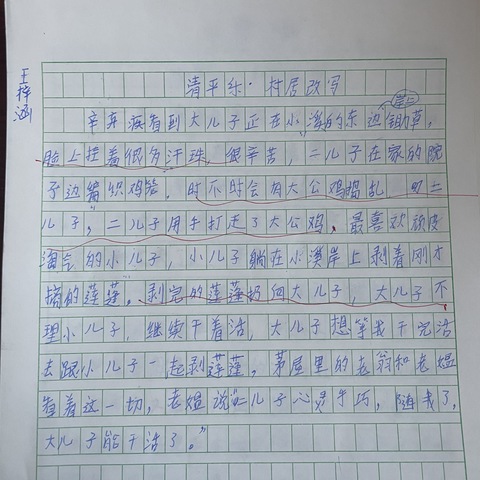 王梓涵
清平乐·村居改写
岸上
辛弃疾看到大儿子正在小溪的东边锄草,
脸上挂着很多汗珠,很辛苦,二儿子在家的院
子边编织鸡笼,时不时会有大公鸡捣乱,叼土
儿子,二儿子用手打走了大公鸡,最喜欢顽皮
淘气的小儿子,小儿子躺在小溪岸上剥着刚才
摘的莲蓬,剥完的莲蓬扔向大儿子,大儿子不
理小儿子,继续干着活,大儿子想等我干完活
去跟小儿子一起剥莲蓬,茅屋里的老翁和老媪
看着这一切,老媪说“二儿子心灵手巧,随我了,
大儿子能干活了。”